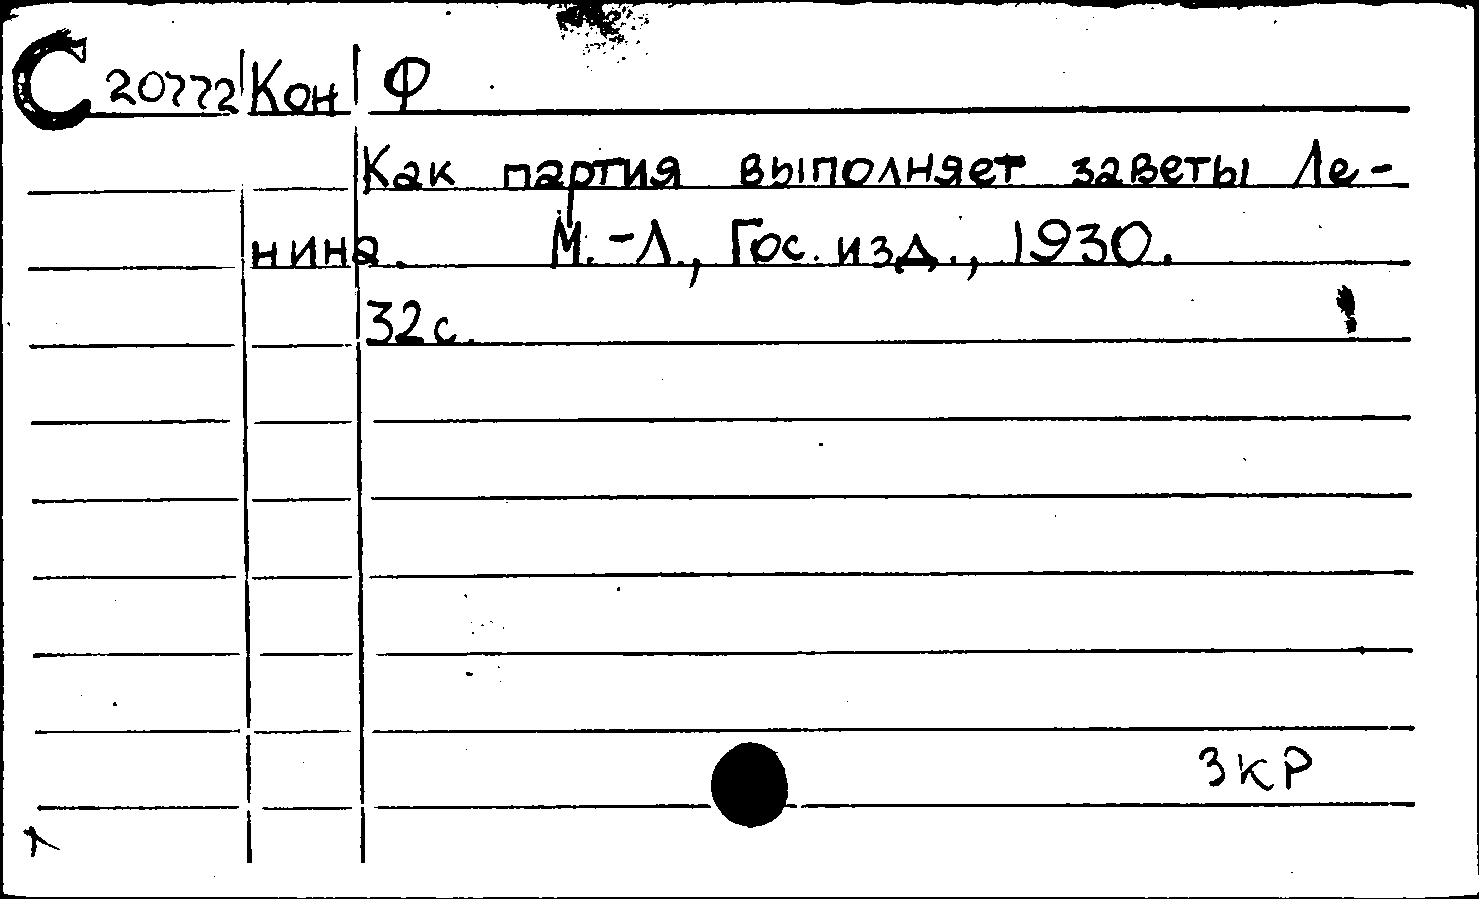 С 20772 Кон Ф
Как партия выполняет заветы Ле-
нина. М.-Л., Гос. изд., 1930.
32 с.
3 кр